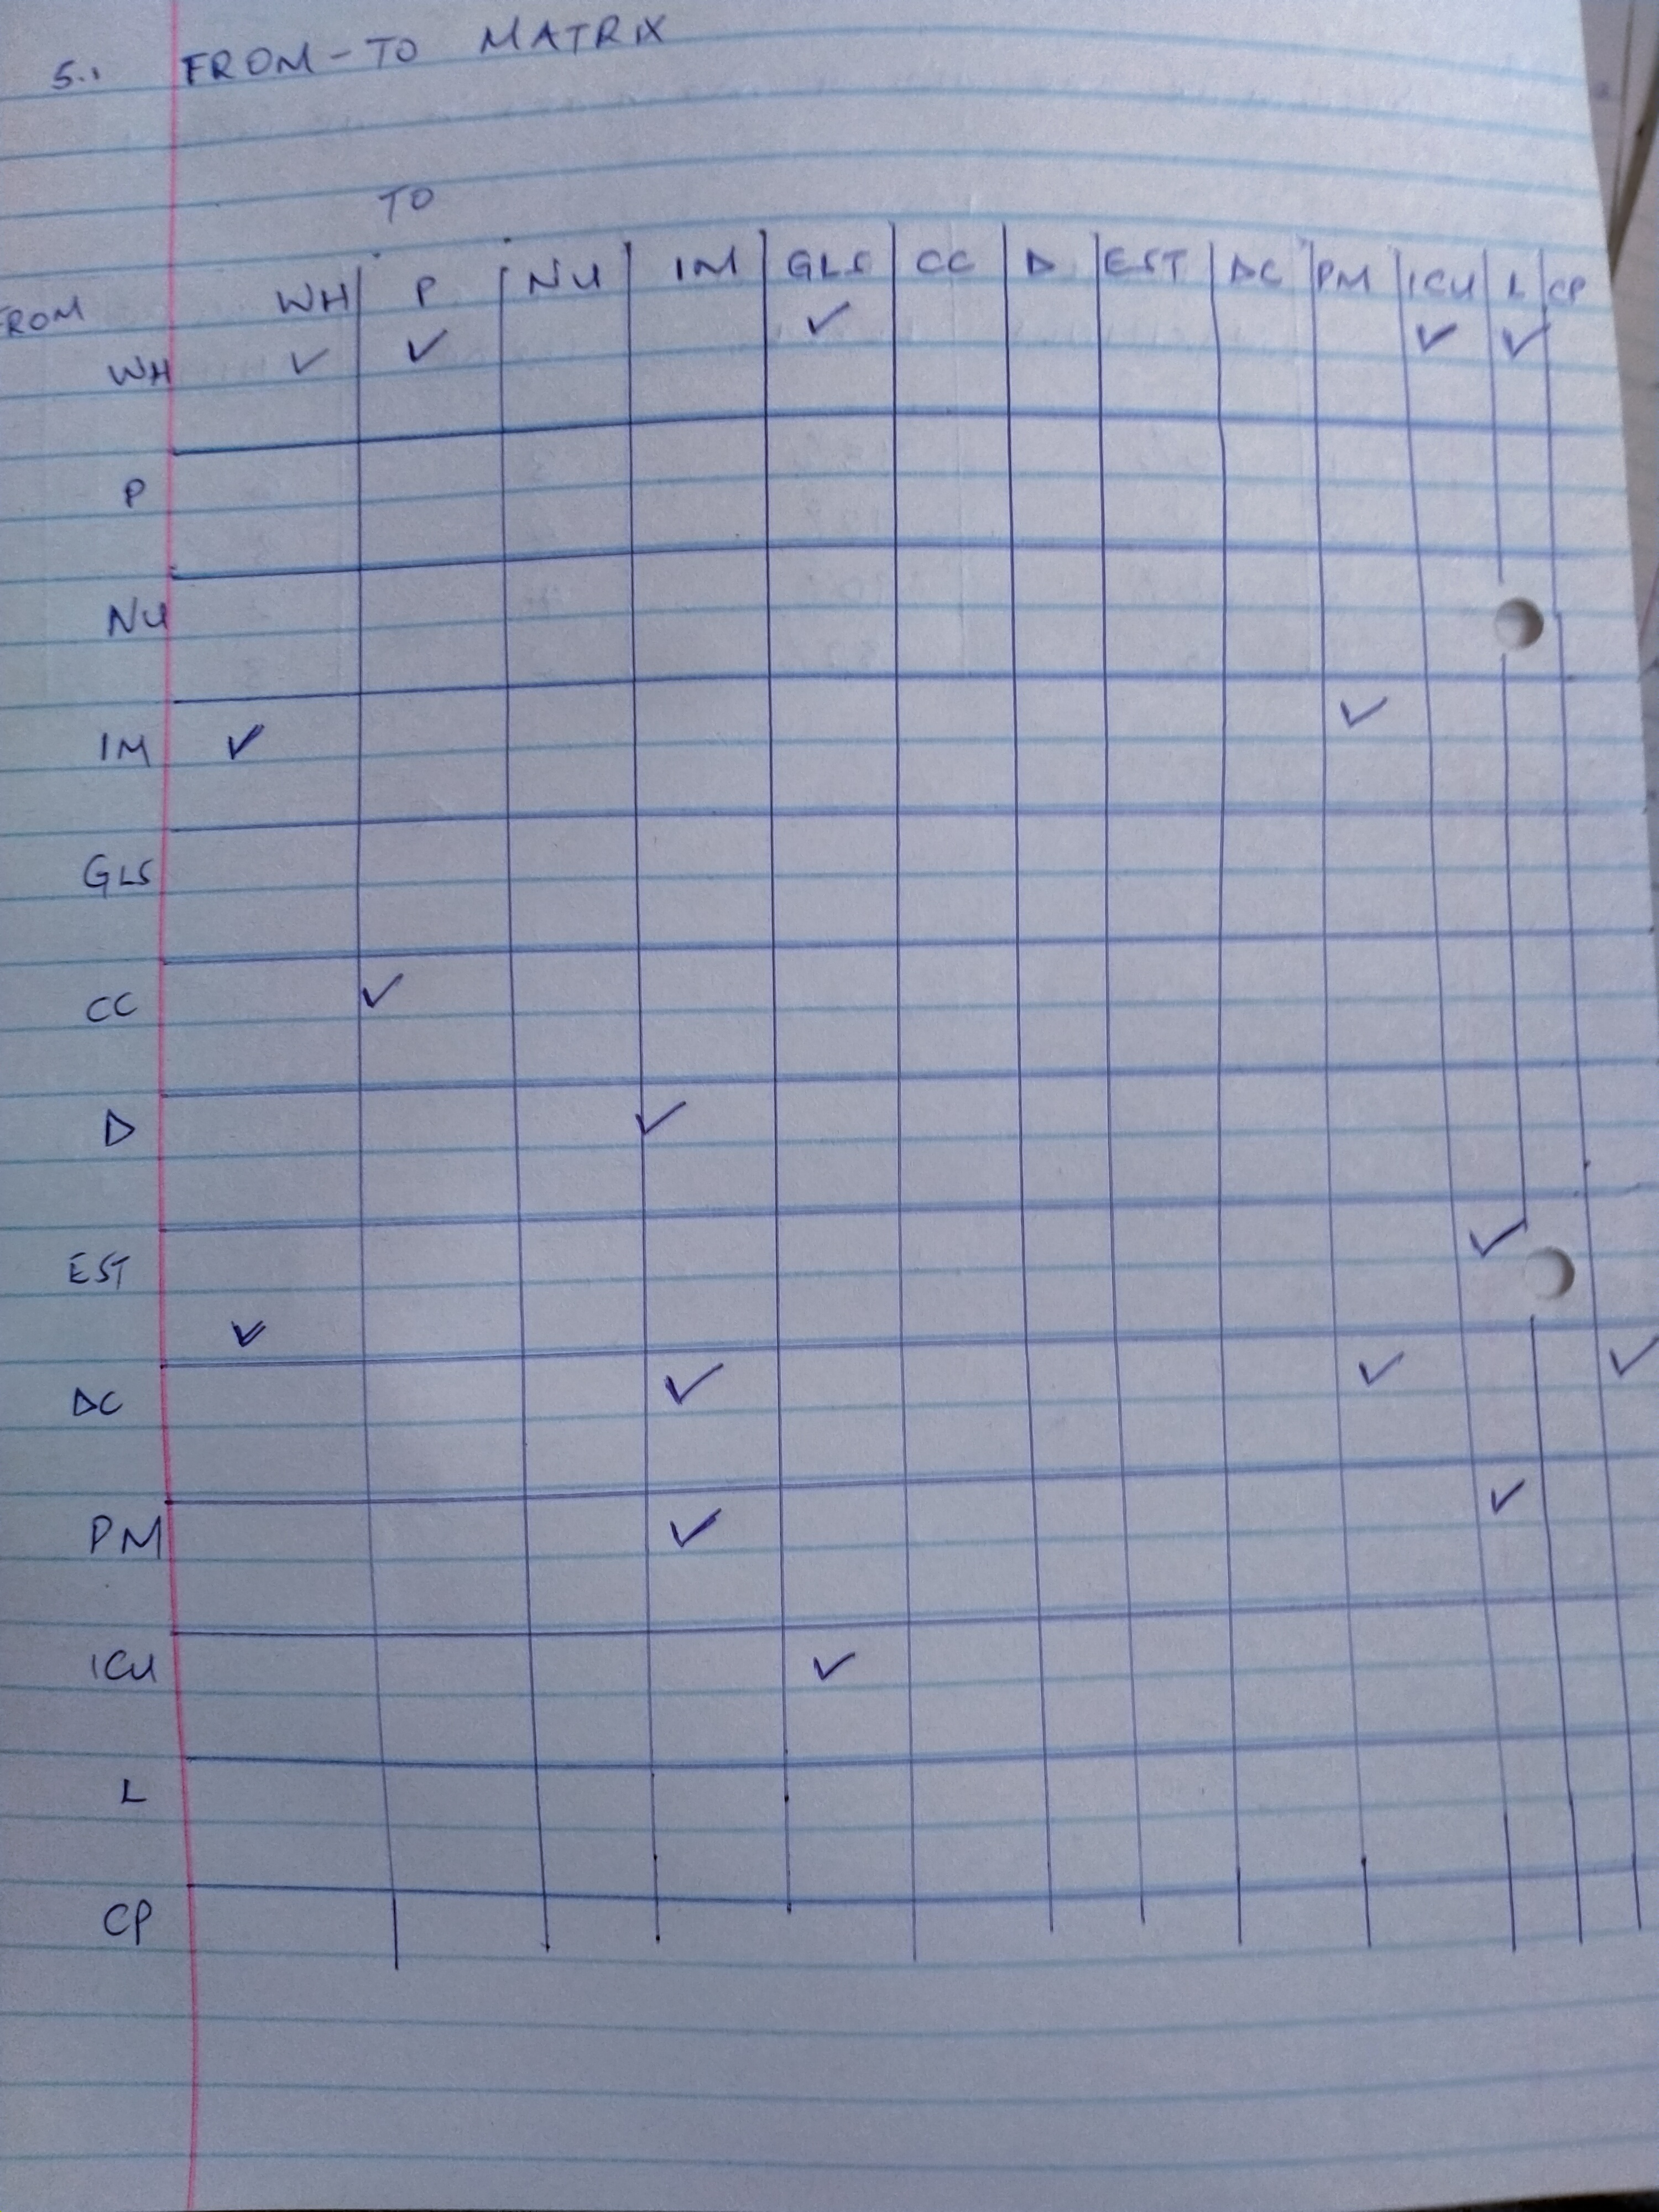 5.1 FROM-TO MATRIX
TO
FROM WH P NU IM GLS CC D EST DC PM ICU L CP
WH ✓ ✓ ✓ ✓ ✓
P
NU
IM ✓ ✓
GLS
CC ✓
D ✓
EST ✓ ✓
DC ✓ ✓ ✓
PM ✓ ✓
ICU ✓
L
CP